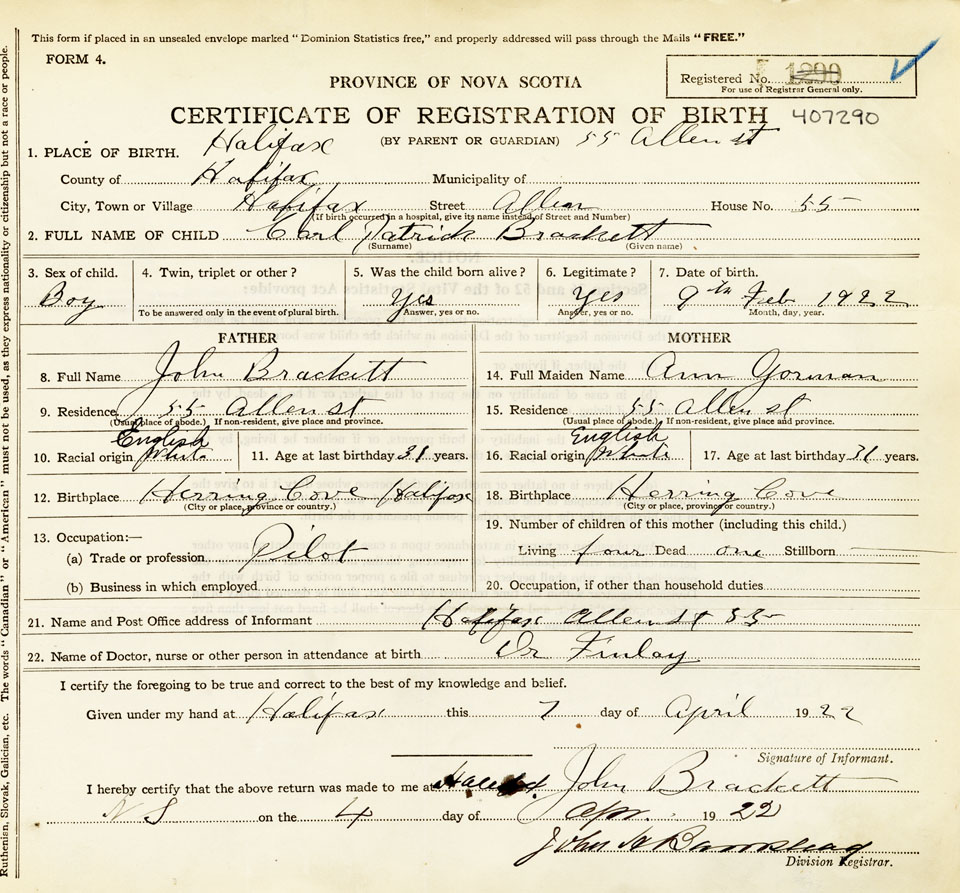 This form if placed in an unsealed envelope marked "Dominion Statistics free," and properly addressed will pass through the Mails "FREE."
FORM 4.
Registered No. 1290
For use of Registrar General only.
PROVINCE OF NOVA SCOTIA
CERTIFICATE OF REGISTRATION OF BIRTH 407290
(BY PARENT OR GUARDIAN) 55 Allen st
1. PLACE OF BIRTH. Halifax
County of Halifax Municipality of
City, Town or Village Halifax Street Allen House No. 55
(If birth occurred in a hospital, give its name instead of Street and Number)
2. FULL NAME OF CHILD Carl Patrick Brackett
(Surname) (Given name)
3. Sex of child. 4. Twin, triplet or other? 5. Was the child born alive? 6. Legitimate? 7. Date of birth.
Boy Yes Yes 9th Feb 1922
To be answered only in the event of plural birth. Answer, yes or no. Answer, yes or no. Month, day, year.
FATHER
8. Full Name John Brackett
9. Residence 55 Allen st
(Usual place of abode.) If non-resident, give place and province.
English
10. Racial origin White 11. Age at last birthday 31 years.
12. Birthplace Herring Cove Halifax
(City or place, province or country.)
13. Occupation:—
(a) Trade or profession Pilot
(b) Business in which employed
MOTHER
14. Full Maiden Name Ann Gorman
15. Residence 55 Allen st
(Usual place of abode.) If non-resident, give place and province.
English
16. Racial origin White 17. Age at last birthday 31 years.
18. Birthplace Herring Cove
(City or place, province or country.)
19. Number of children of this mother (including this child.)
Living four Dead one Stillborn
20. Occupation, if other than household duties
21. Name and Post Office address of Informant Halifax Allen st 55
22. Name of Doctor, nurse or other person in attendance at birth Dr Finlay
I certify the foregoing to be true and correct to the best of my knowledge and belief.
Given under my hand at Halifax this 7 day of April 1922
Signature of Informant.
I hereby certify that the above return was made to me at John Brackett
N S on the 4 day of Apr. 1922
John
Division Registrar.
Ruthenian, Slovak, Galician, etc. The words "Canadian" or "American" must not be used, as they express nationality or citizenship but not a race or people.